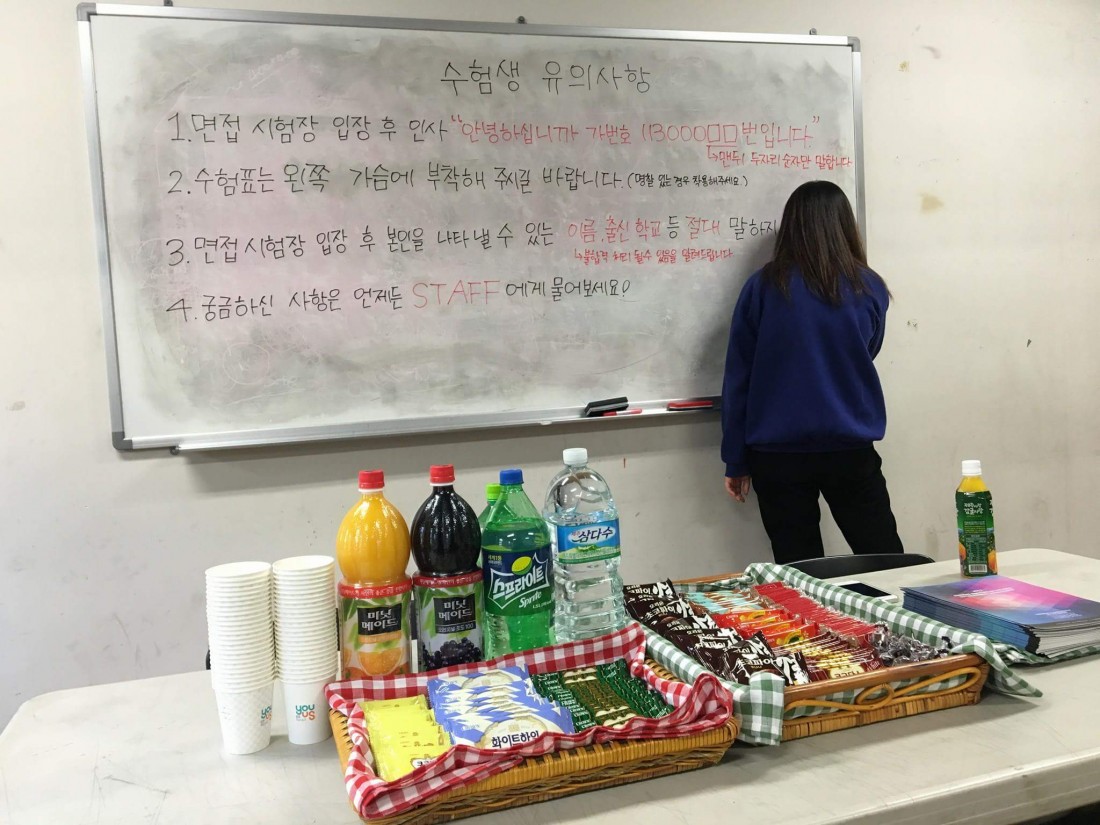 수험생 유의사항
1. 면접 시험장 입장 후 인사 "안녕하십니까 가번호 113000□□번입니다."
↳맨뒤 두자리 숫자만 말합니다
2. 수험표는 왼쪽 가슴에 부착해 주시길 바랍니다. (명찰 있는 경우 착용해주세요)
3. 면접 시험장 입장 후 본인을 나타낼 수 있는 이름, 출신학교 등 절대 말하지
↳불합격 처리 될수 있음을 알려드립니다.
4. 궁금하신 사항은 언제든 STAFF에게 물어보세요!
미닛
메이드
미닛
메이드
스프라이트
Sprite
삼다수
you
r us
you
r us
화이트하임
초코파이